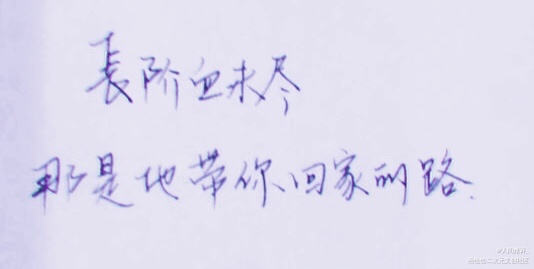 長阶血未尽
那是他带你回家的路.